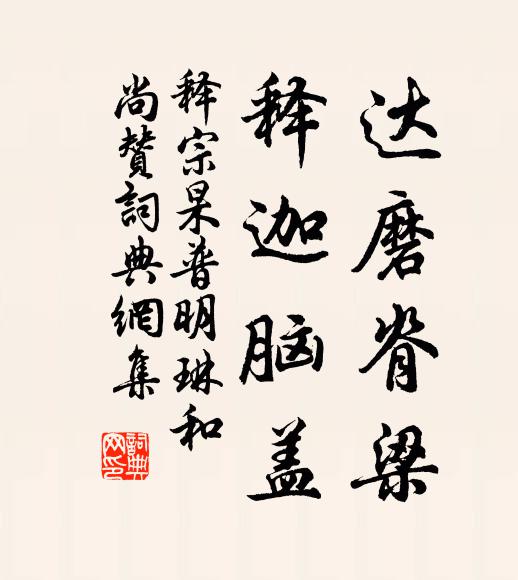 达磨脊梁
释迦脑盖
释宗杲普明琳和
尚赞词典網集
詞典網印